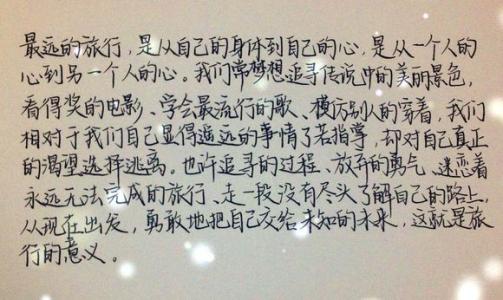 最远的旅行，是从自己的身体到自己的心，是从一个人的
心到另一个人的心。我们常梦想追寻传说中的美丽景色，
看得奖的电影、学会最流行的歌、模仿别人的穿着，我们
相对于我们自己显得遥远的事情了若指掌，却对自己真正
的渴望选择逃离。也许追寻的过程、放弃的勇气、迷恋着
永远无法完成的旅行、走一段没有尽头了解自己的路上，
从现在出发，勇敢地把自己交给未知的未来，这就是旅
行的意义。